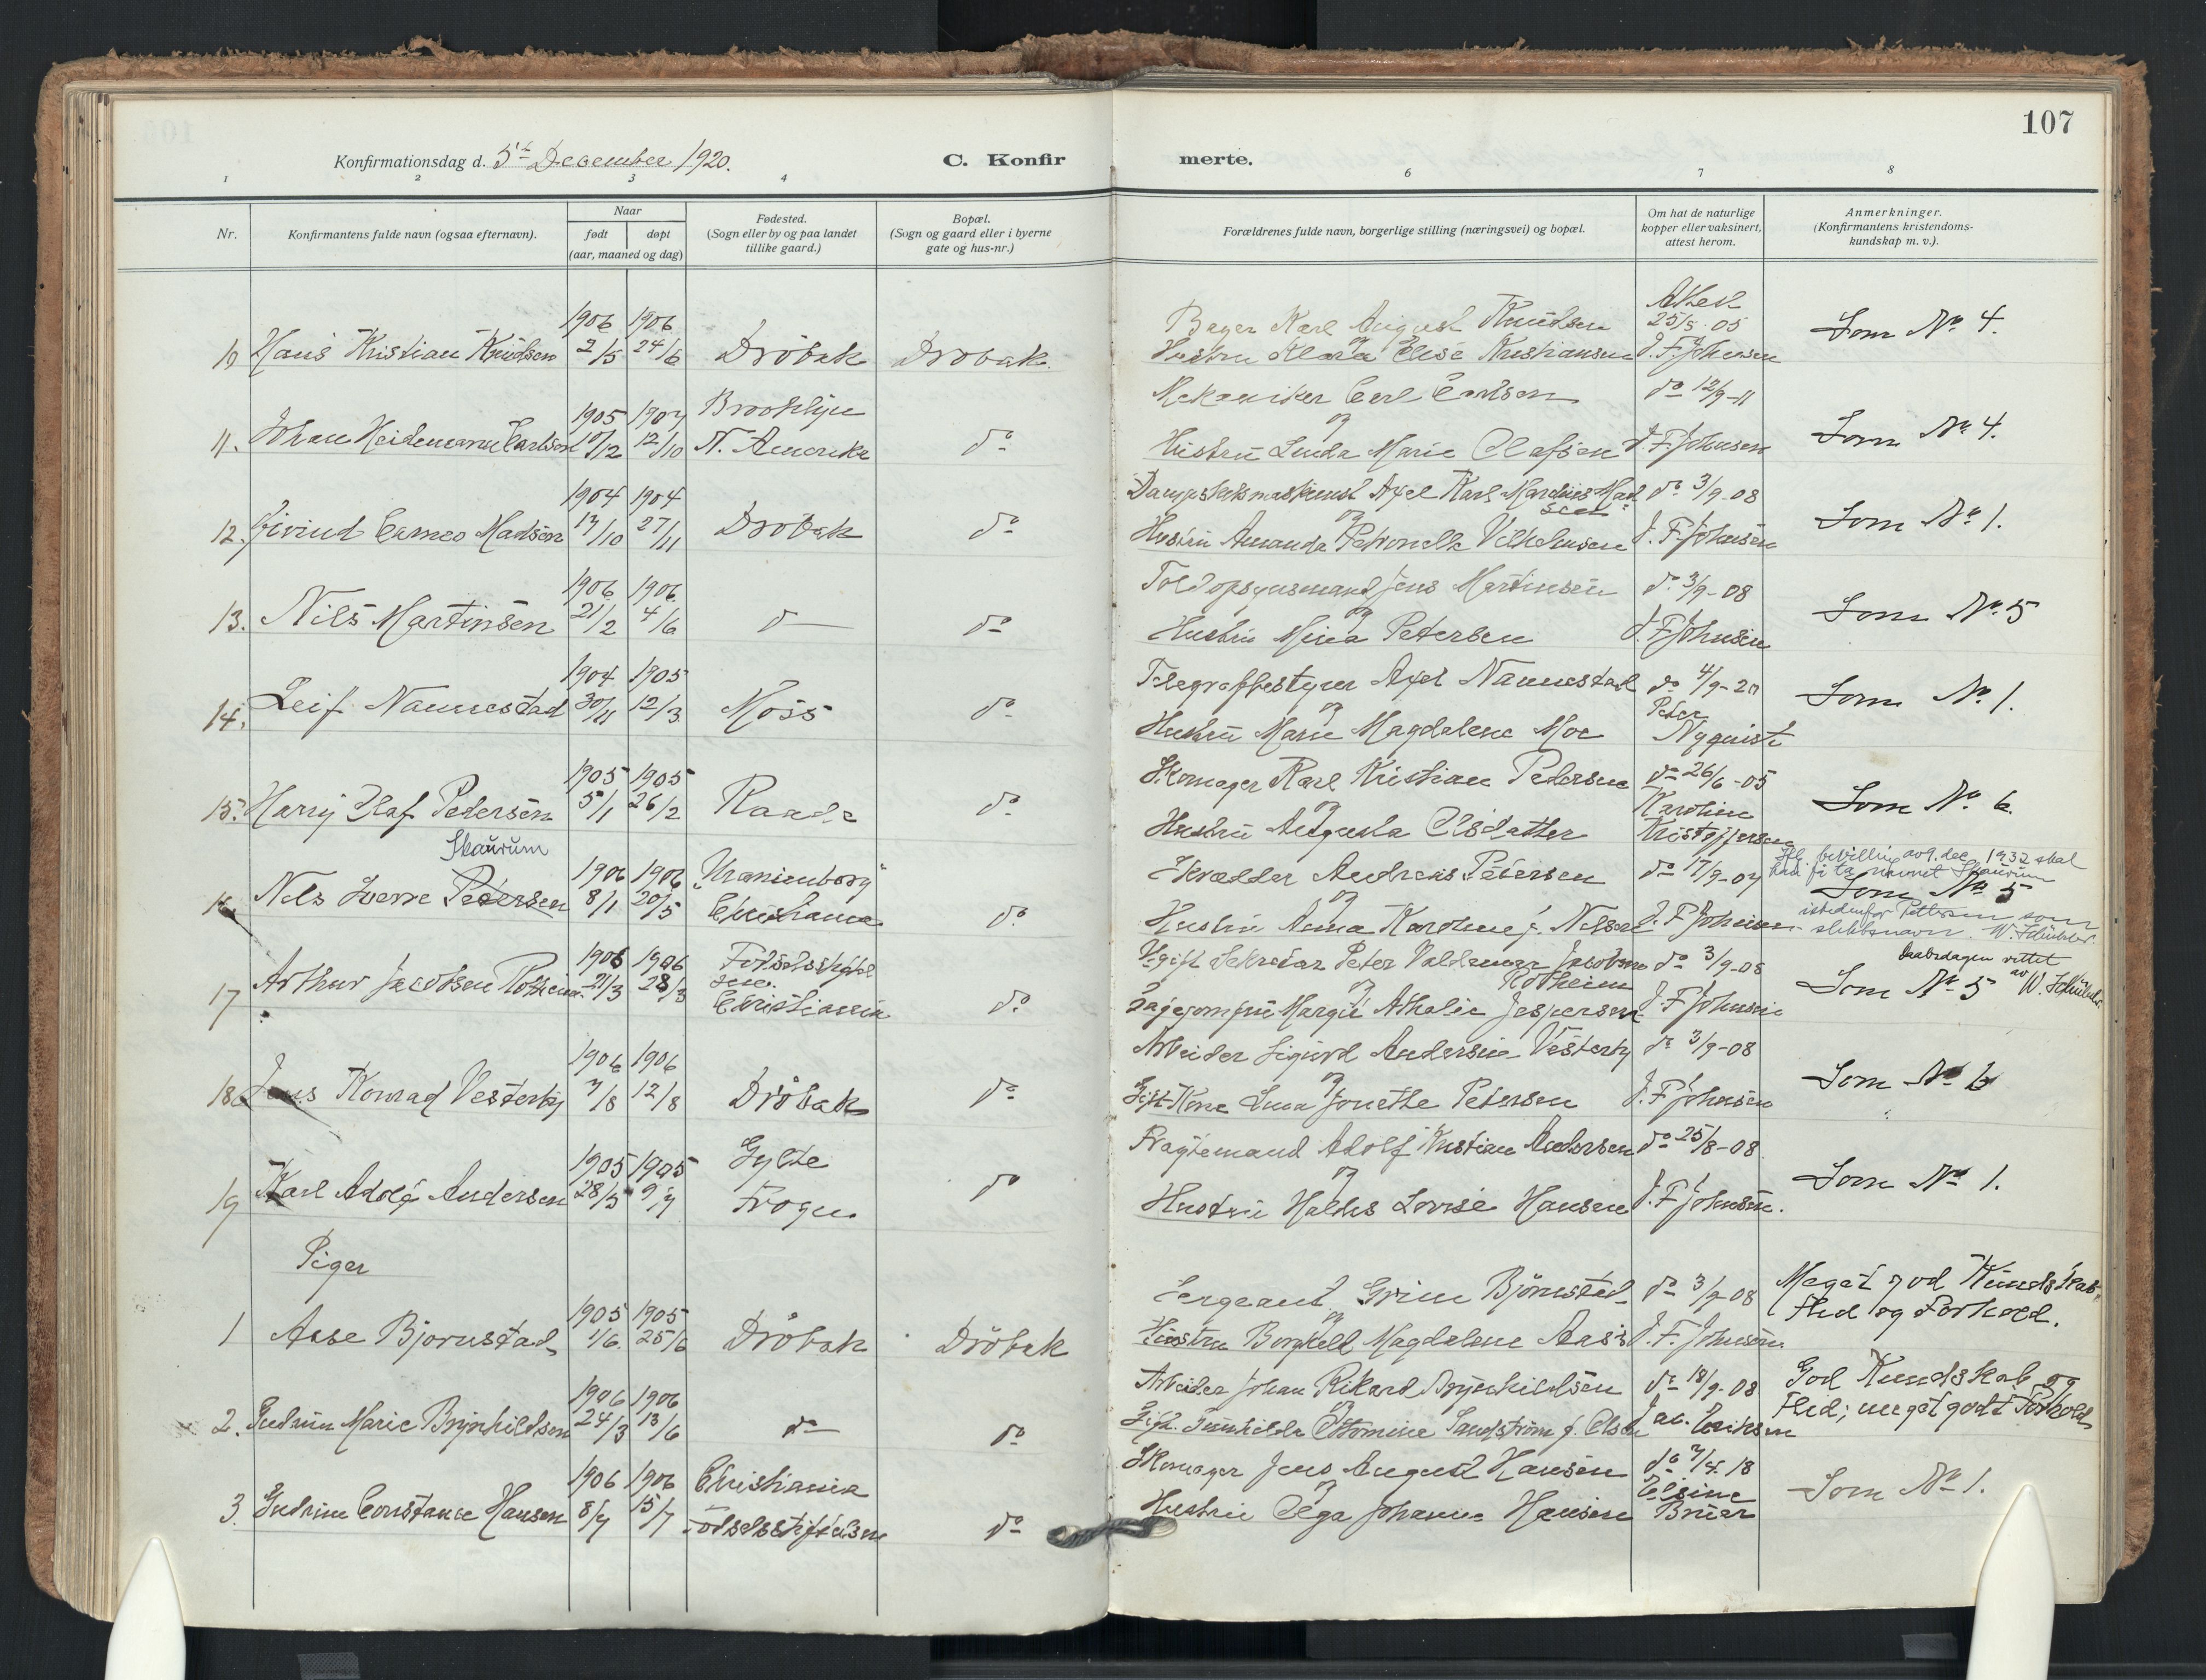 107
Konfirmationsdag d. 5te December 1920.
C. Konfir
merte.
1 2 3 4 6 7 8
Nr.
Konfirmantens fulde navn (ogsaa efternavn).
Naar
født
døpt
(aar, maaned og dag)
Fødested.
(Sogn eller by og paa landet
tillike gaard.)
Bopæl.
(Sogn og gaard eller i byerne
gate og hus-nr.)
Forældrenes fulde navn, borgerlige stilling (næringsvei) og bopæl.
Om hat de naturlige
kopper eller vaksinert,
attest herom.
Anmerkninger.
(Konfirmantens kristendoms-
kundskap m. v.).
1906 1906
10 Hans Kristian Knudsen 2/5 24/6 Drøbak Drøbak
Bager Karl August Knudsen
og
Hustru Klara Elise Kristiansen
Attest
25/8-05
J. F. Johnsen
Som No 4.
1905 1907 Brooklyn
11. Johan Heidemann Carlson 10/12 12/10 N. Amerika do
Mekaniker Carl Carlson
og
Hustru Linda Marie Olafsen
do 12/9-11
J. F. Johnsen
Som No 4.
1904 1904
12. Øivind Cameo Madsen 17/10 27/11 Drøbak do
Dampskibsmaskinist Axel Karl Mardius Mad-
sen
og
Hustru Amanda Petronelle Vilhelmsen
do 3/9-08
J. F. Johnsen
Som No 1.
1906 1906
13. Nils Martinsen 21/2 4/6 do do
Toldopsynsmand Jens Martinsen
og
Hustru Mina Petersen
do 3/9-08
J. F. Johnsen
Som No 5
1904 1905
14. Leif Nannestad 30/11 12/3 Moss do
Telegrafbestyrer Axel Nannestad
og
Hustru Marie Magdalene Moe
do 4/9-20
Peter
Nyquist
Som No 1.
1905 1905
15. Harry Olaf Pedersen 5/1 26/2 Raade do
Skomager Karl Kristian Pedersen
og
Hustru Augusta Olsdatter
do 26/6-05
Karoline
Kristoffersen
Som No 6.
Skaurum
1906 1906 "Uranienborg"
16. Nils Sverre Petersen 8/1 20/5 Christiania do
Skrædder Andreas Petersen
og
Hustru Anna Karoline f. Nilsen
do 17/9-07
J. F. Johnsen
Kgl. bevilling av 9. dec. 1932 skal
han få ta navnet Skaurum
Som No 5
istedenfor Pettersen som
slektsnavn. W. Schübeler
1906 1906 Fødselsstiftel
sen.
17 Arthur Jacobsen Rotheim 21/3 28/3 Christiania do
Ugift Sekretær Peter Valdemar Jacobsen
Rotheim
og
Sagjomfru Margit Athalie Jespersen
do 3/9-08
J. F. Johnsen
Daabsdagen rettet
av W. Schübeler
Som No 5
1906 1906
18. Jens Konrad Vesterby 7/8 12/8 Drøbak do
Arbeider Sigurd Andersen Vesterby
og
Gift Kone Lina Jonette Petersen
do 3/9-08
J. F. Johnsen
Som No 6
1905 1905 Gylte
19 Karl Adolf Andersen 28/5 9/7 Frogn do
Fragtemand Adolf Kristian Andersen
og
Hustru Haldis Lovise Hansen
do 25/8-08
J. F. Johnsen.
Som No 1.
Piger
1905 1905
1 Aase Bjørnstad 1/6. 25/6 Drøbak Drøbak
Sergeant Grim Bjørnstad
og
Hustru Borghild Magdalene Aas
do 3/9-08
J. F. Johnsen.
Meget god Kundskab,
Flid og Forhold.
1906 1906
2. Gudrun Marie Brynhildsen 24/3 13/6 do do
Arbeider Johan Rikard Brynhildsen
og
Gift. Gunhilda Ottomine Sandstrøm f. Olsen
do 18/9-08
Jac. Eriksen
God Kundskab og
Flid; meget godt Forhold
1906 1906 Christiania
3. Gudrun Constance Hansen 8/7 15/7 Fødselsstiftelsen do
Skomager Jens August Hansen
og
Hustru Olga Johanne Hansen
do 7/4-18
Elsine
Bruer
Som No 1.